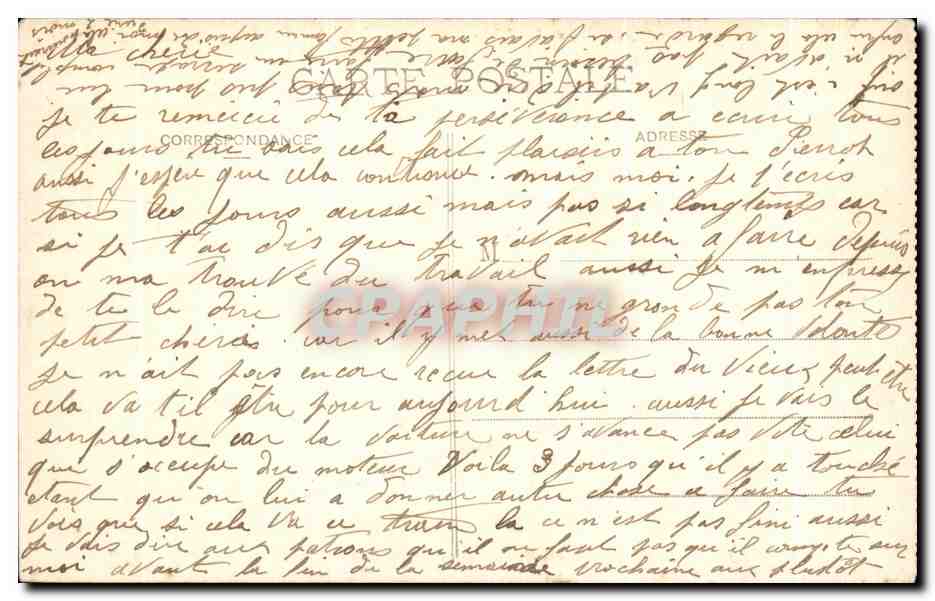 Ma cherie
CARTE POSTALE
je te remercie de ta perséverance a ecrire tous
CORRESPONDANCE
ADRESSE
les jours tu sais cela fait plaisirs a ton Pierrot
aussi j'espere que cela continue. mais moi. je t'ecris
tous les jours aussi mais pas si longtemps car
si je t'ai dis que je n'avait rien a faire depuis
on ma trouvé du travail aussi je m'enpresse
de te le dire pour que tu ne gronde pas ton
petit cheries. car il y met aussi de la bonne volonté
CPAPHIL
je n'ait pas encore recue la lettre du vieux peut être
cela va t il être pour aujourd'hui. aussi je vais le
surprendre car la voiture ne s'avance pas vite celui
que s'occupe du moteur Voila 3 jours qu'il y a touché
etant qu'on lui a donner autre chose a faire tu
vois que si cela va ce train la ce n'est pas fini aussi
je vais dire aux patrons qu'il ne faut pas qu'il compte sur
moi avant la fin de la semaine prochaine au plutôt